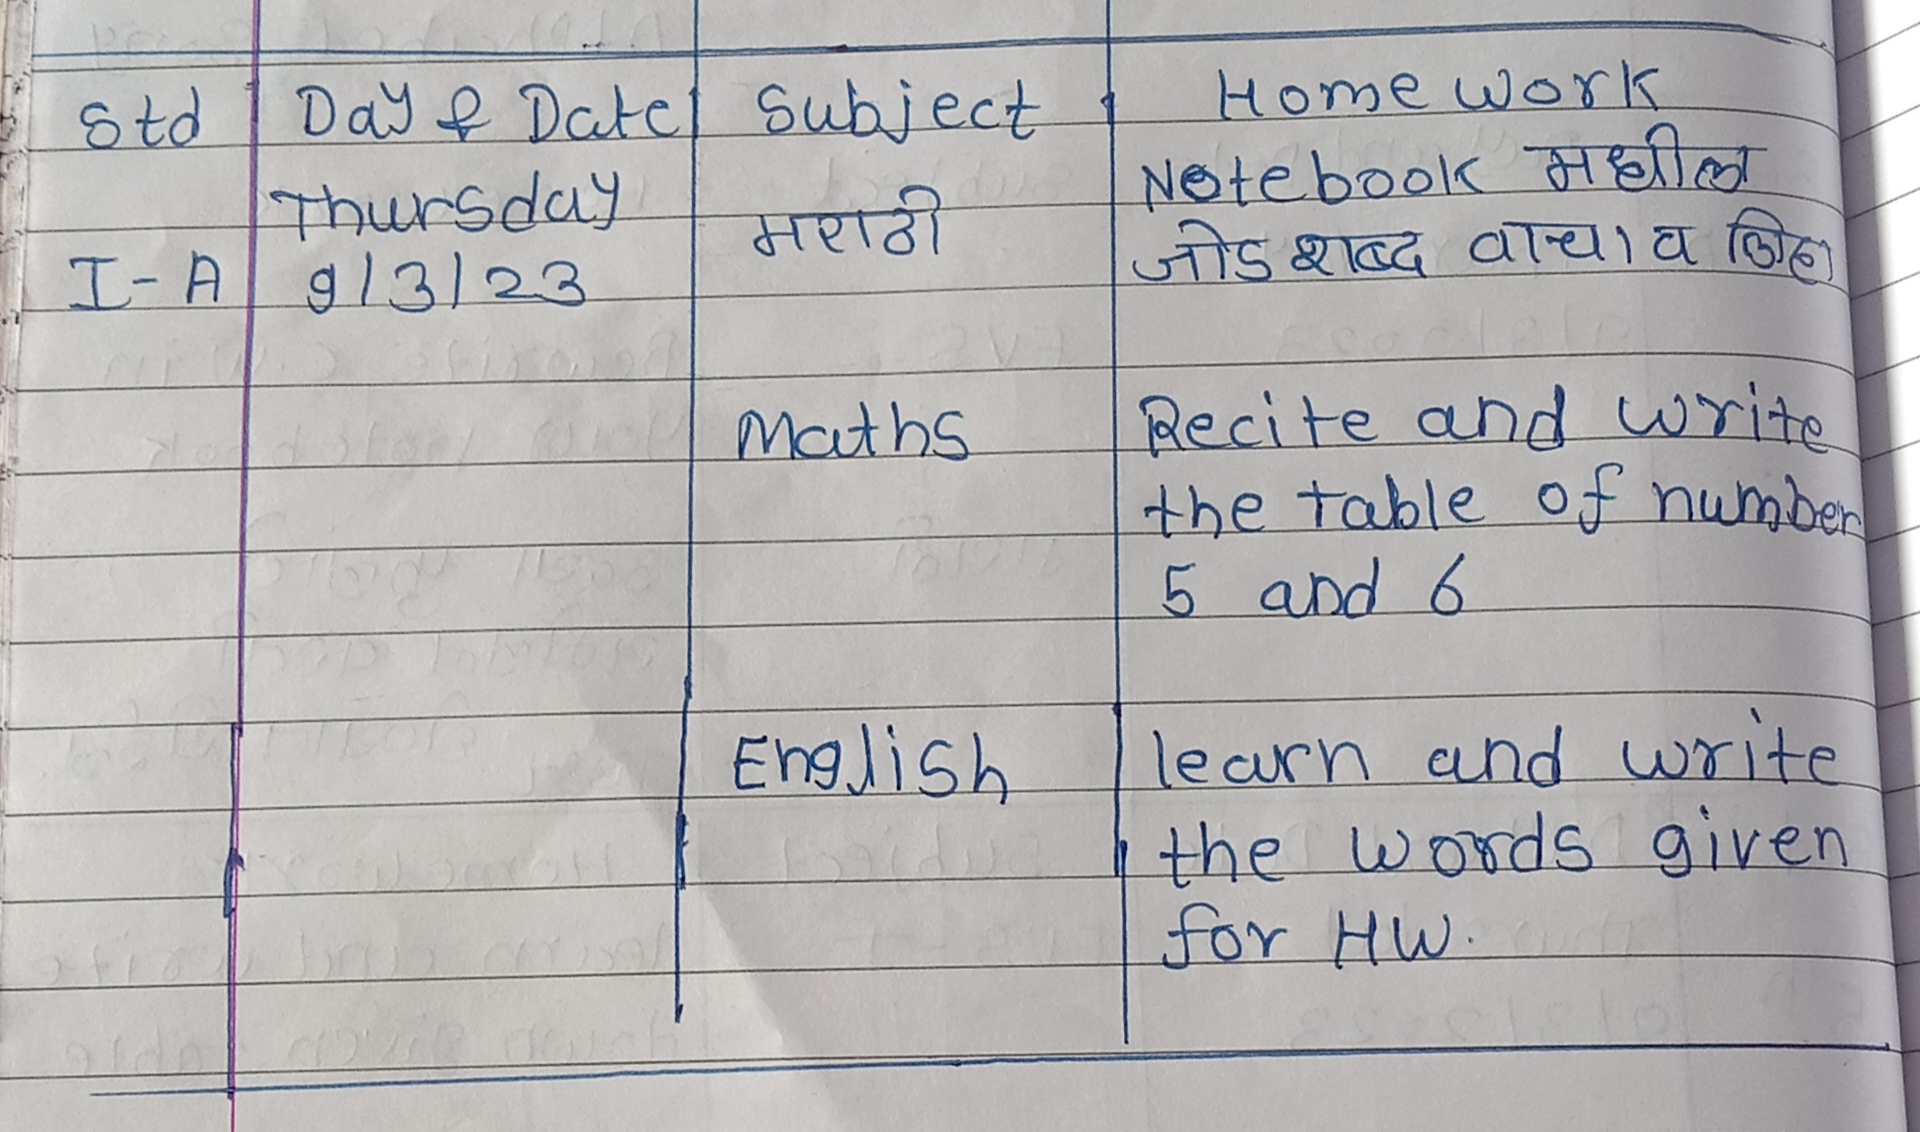 Std Day & Date Subject Home work
Thursday Notebook मधील
मराठी जोडशब्द वाचा व लिहा
I-A 9/3/23
Maths Recite and write
the table of number
5 and 6
English learn and write
the words given
for HW.